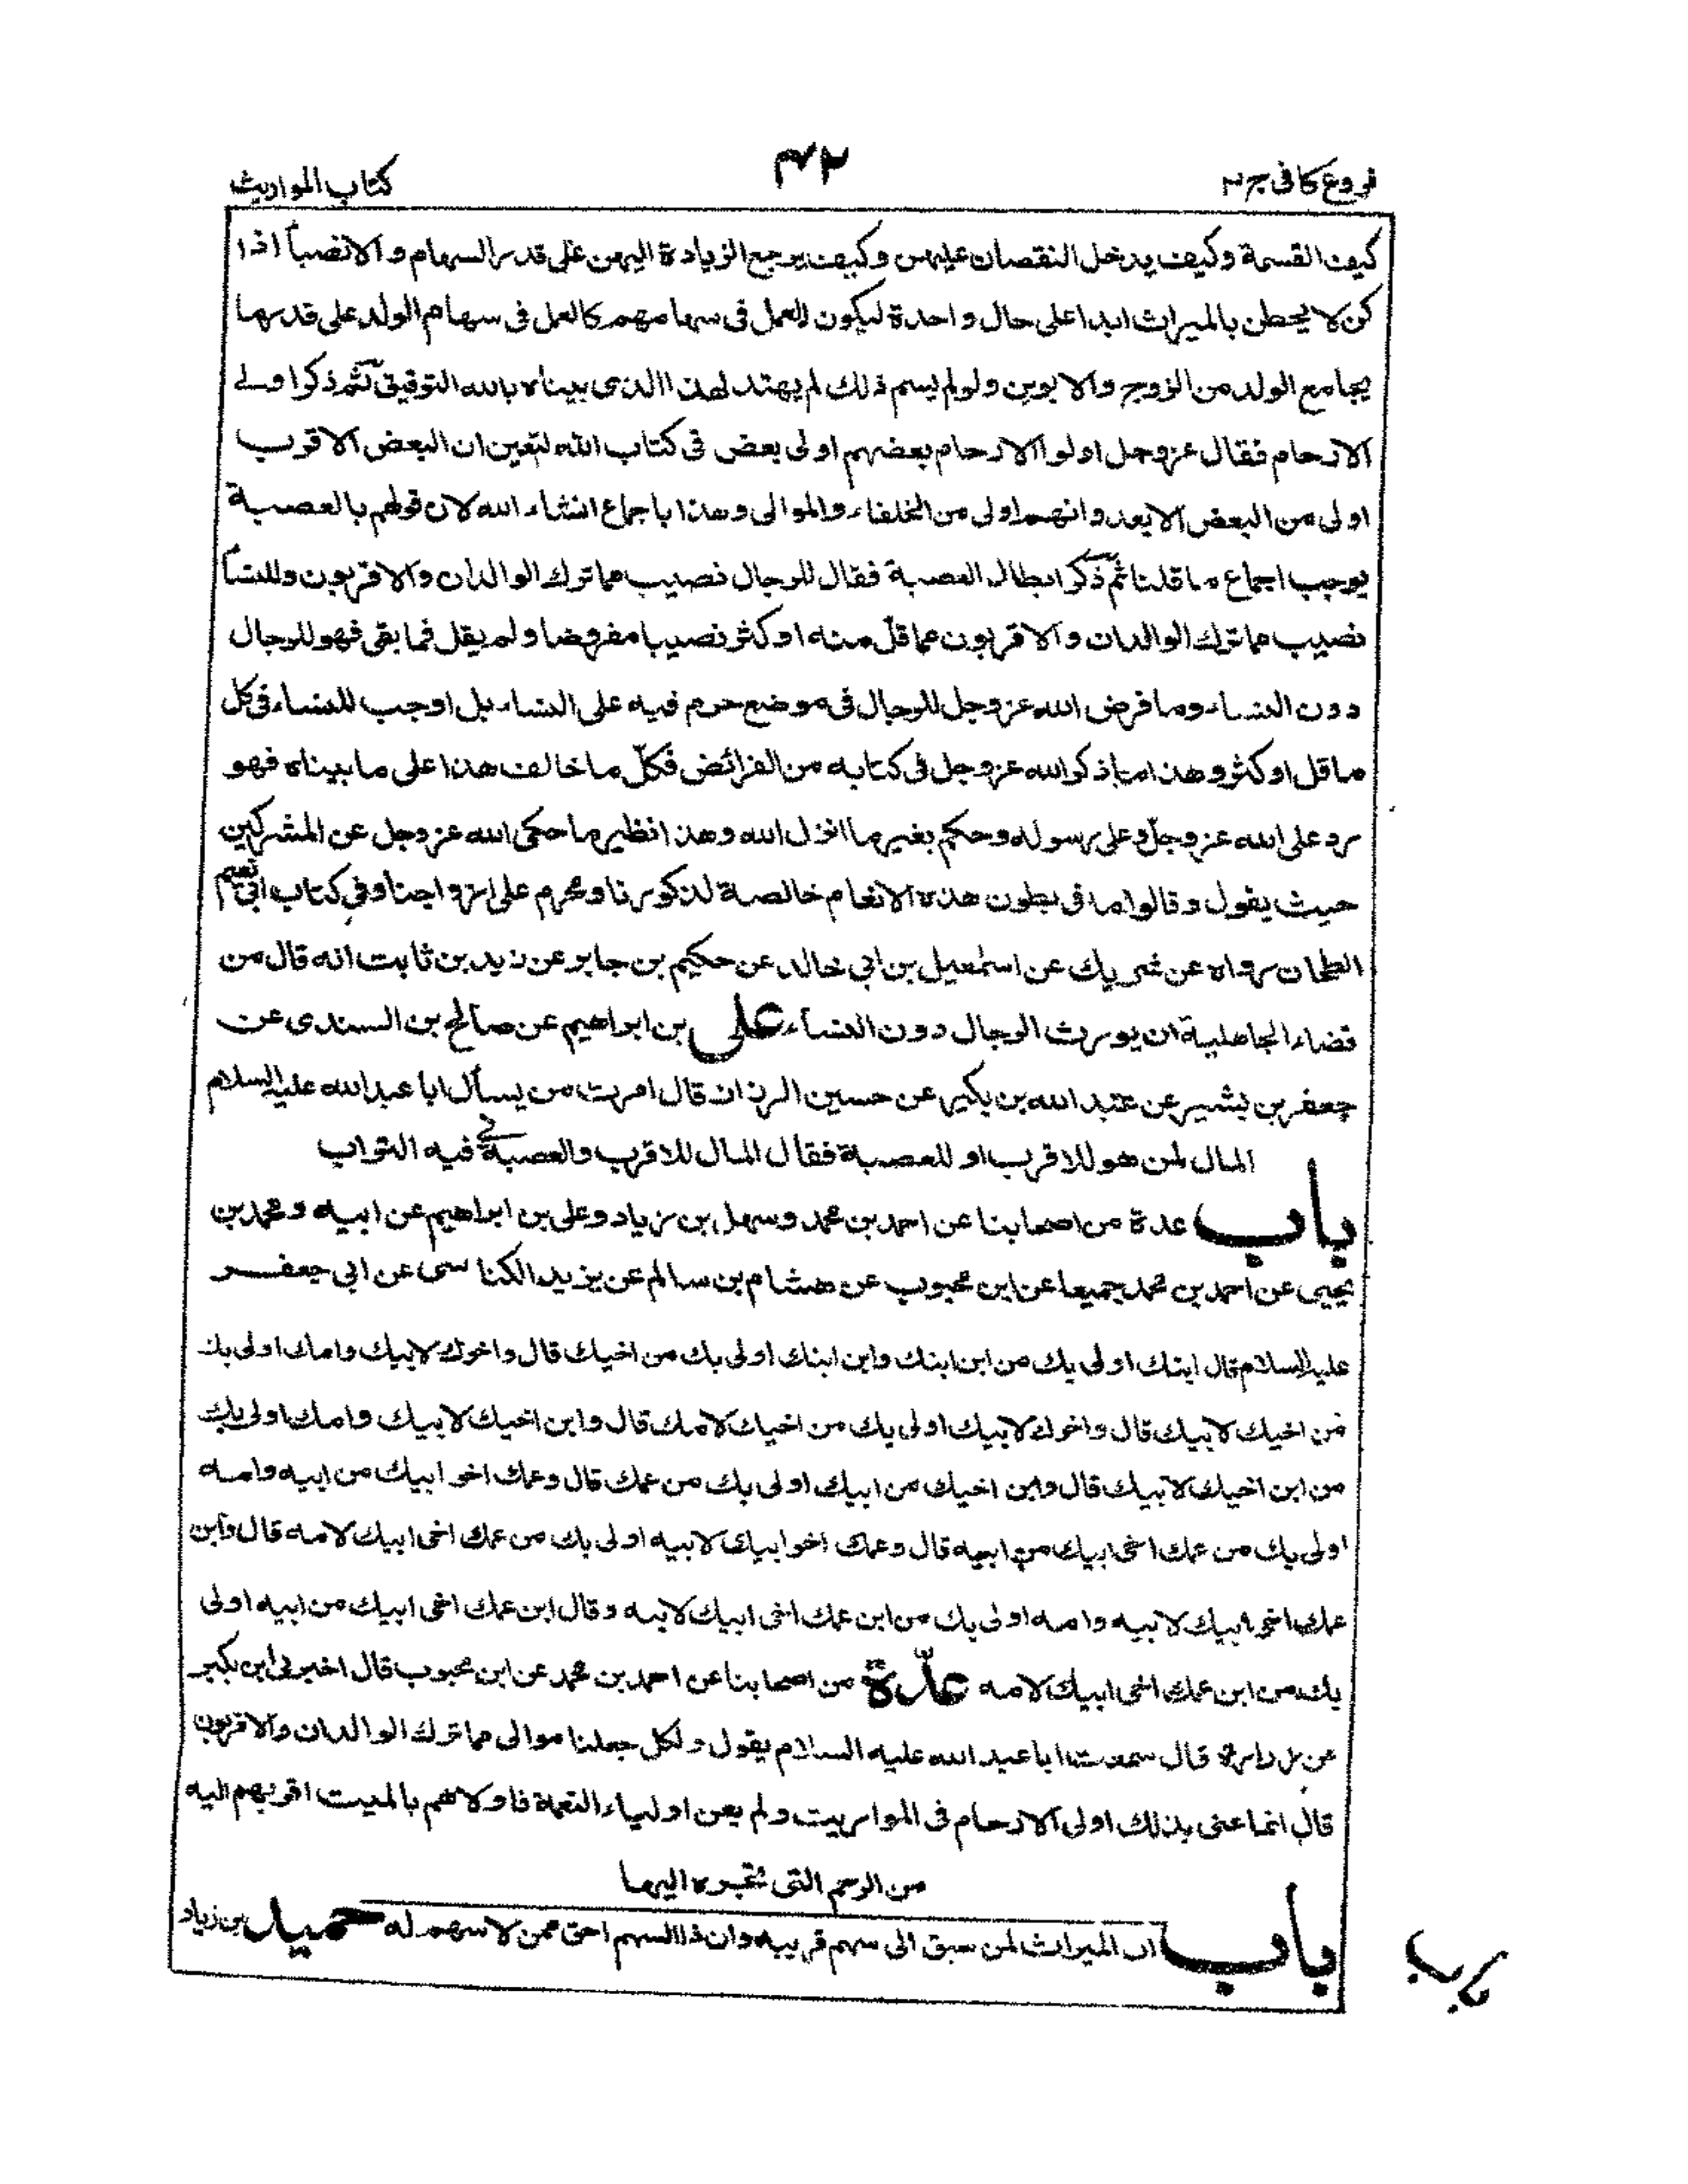 فروع كافى ج ٣
٤٢
كتاب المواريث
كيف القسمة وكيف يدخل النقصان عليهن وكيف يرجع الزيادة اليهن على قدر السهام والانصباء اذا
كن لا يحطن بالميراث ابدا على حال واحدة ليكون العمل فى سهامهم كالعمل فى سهام الولد على قدر ما
يجامع الولد من الزوج والابوين ولو لم يسم ذلك لم يهتد لهذا الذى بيناه بالله التوفيق ثم ذكر اولى
الارحام فقال عز وجل اولوا الارحام بعضهم اولى ببعض فى كتاب الله ليتعين ان البعض الاقرب
اولى من البعض الابعد وانهم اولى من الخلفاء والموالى وهذا باجماع انشاء الله لان قولهم بالعصبة
يوجب اجماع ما قلنا ثم ذكر ابطال العصبة فقال للرجال نصيب مما ترك الوالدان والاقربون وللنساء
نصيب مما ترك الوالدان والاقربون مما قل منه او كثر نصيبا مفروضا ولم يقل فما بقى فهو للرجال
دون النساء وما فرض الله عز وجل للرجال فى موضع حرم فيه على النساء بل اوجب للنساء فى كل
ما قل او كثر وهذا ما ذكر الله عز وجل فى كتابه من الفرائض فكل ما خالف هذا على ما بيناه فهو
رد على الله عز وجل وعلى رسوله وحكم بغير ما انزل الله وهذا نظير ما حكى الله عز وجل عن المشركين
حيث يقول وقالوا ما فى بطون هذه الانعام خالصة لذكورنا ومحرم على ازواجنا وفى كتاب ابى نعيم
الطحان رواه عن شريك عن اسمعيل بن ابى خالد عن حكيم بن جابر عن زيد بن ثابت انه قال من
قضاء الجاهلية ان يورث الرجال دون النساء على بن ابراهيم عن صالح بن السندى عن
جعفر بن بشير عن عبد الله بن بكير عن حسين الرزاز قال امرت من يسأل ابا عبد الله عليه السلام
المال لمن هو للاقرب او للعصبة فقال المال للاقرب والعصبة فى فيه التراب
باب عدة من اصحابنا عن احمد بن محمد وسهل بن زياد وعلى بن ابراهيم عن ابيه ومحمد بن
يحيى عن احمد بن محمد جميعا عن ابن محبوب عن هشام بن سالم عن يزيد الكناسى عن ابى جعفر
عليه السلام قال ابنك اولى بك من ابن ابنك وابن ابنك اولى بك من اخيك قال واخوك لابيك وامك اولى بك
من اخيك لابيك قال واخوك لابيك اولى بك من اخيك لامك قال وابن اخيك لابيك وامك اولى بك
من ابن اخيك لابيك قال وابن اخيك من ابيك اولى بك من عمك قال وعمك اخو ابيك من ابيه وامه
اولى بك من عمك اخى ابيك من ابيه قال وعمك اخو ابيك لابيه اولى بك من عمك اخى ابيك لامه قال وابن
عمك اخى ابيك لابيه وامه اولى بك من ابن عمك اخى ابيك لابيه وقال ابن عمك اخى ابيك من ابيه اولى
بك من ابن عمك اخى ابيك لامه عدة من اصحابنا عن احمد بن محمد عن ابن محبوب قال اخبرنى ابن بكير
عن زرارة قال سمعت ابا عبد الله عليه السلام يقول ولكل جعلنا موالى مما ترك الوالدان والاقربون
قال انما عنى بذلك اولى الارحام فى المواريث ولم يعن اولياء النعمة فاولاهم بالميت اقربهم اليه
من الرحم التى تجره اليها
باب ان الميراث لمن سبق الى سهم قريبه وان ذا السهم احق ممن لا سهم له حميد بن زياد